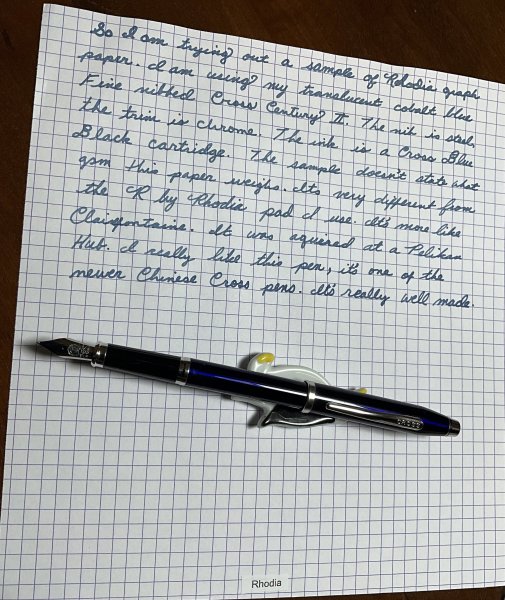 So I am trying out a sample of Rhodia graph
paper. I am using my translucent cobalt blue
Fine nibbed Cross Century II. The nib is steel,
the trim is chrome. The ink is a Cross Blue
Black cartridge. The sample doesn't state what
gsm this paper weighs. Its very different from
the R by Rhodia pad I use. It's more like
Clairfontaine. It was aquired at a Pelikan
Hub. I really like this pen, it's one of the
newer Chinese Cross pens. It's really well made.
CROSS
Rhodia